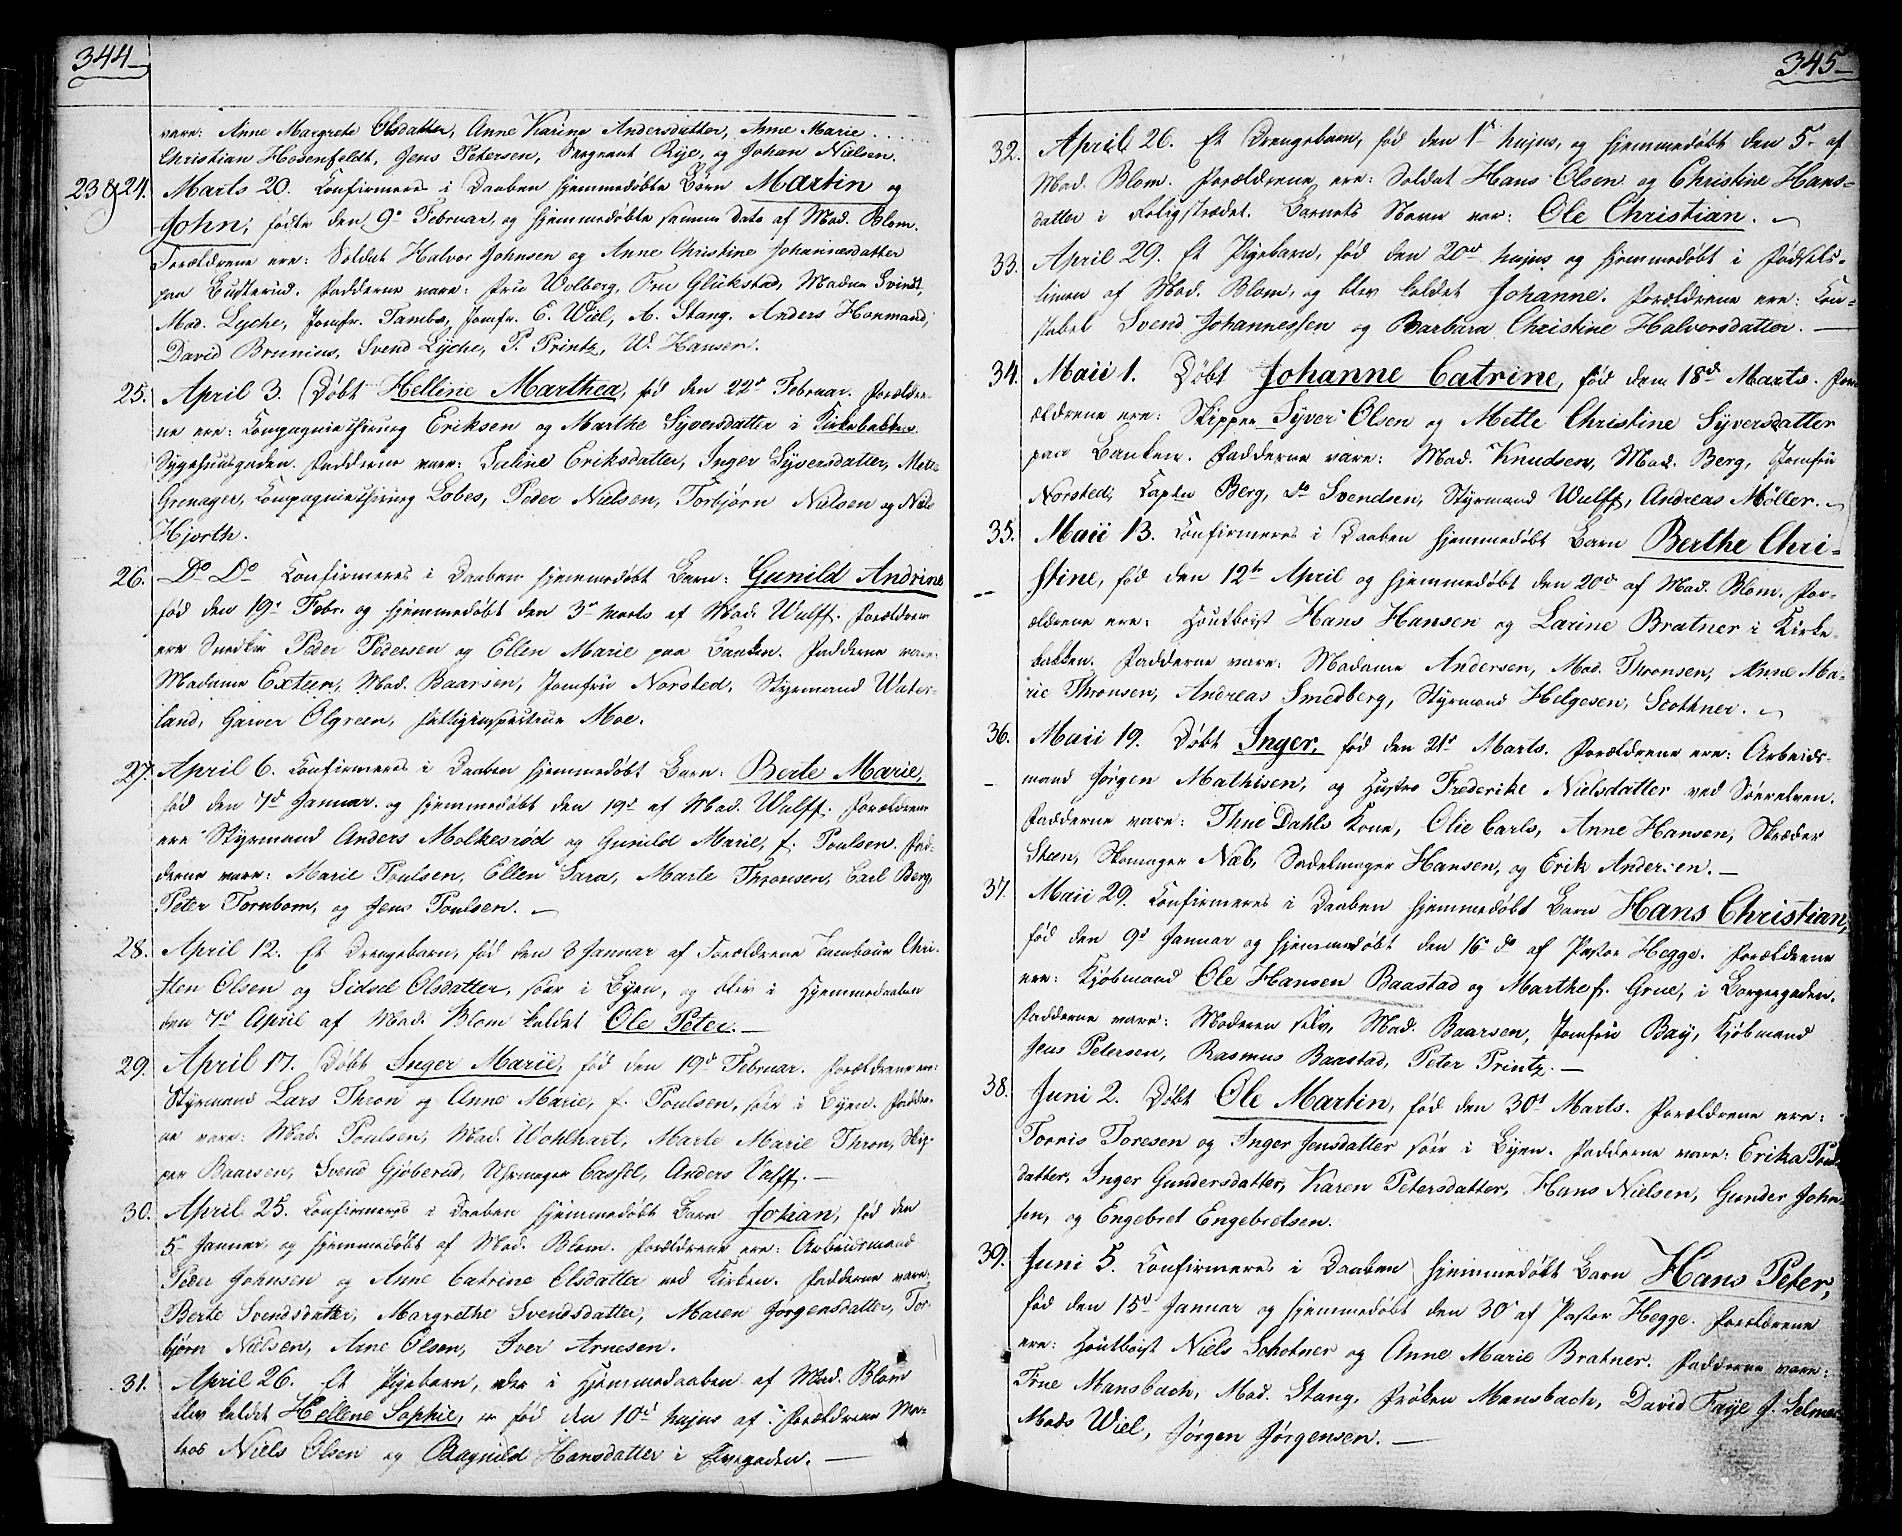 344
vare: Anne Margrete Olsdatter, Anne Karine Andersdatter, Anne Marie
Christian Hosenfeldt, Jens Petersen, Sergeant Rye, og Johan Nielsen.
23 & 24. Marts 20. Confirmeres i Daaben hjemmedøbte Børn Martin og
John, fødte den 9de Februar, og hjemmedøbte samme Dato af Mad. Blom.
Forældrene ere: Soldat Halvor Johnsen og Anne Christine Johannesdatter
paa Gudterud. Fadderne vare: Frue Wolberg, Frue Glückstad, Madme Svindt,
Mad. Lyche, Jomfr. Tambs, Jomfr. E. Wiel, A. Stang, Anders Honmand,
David Brunius, Svend Lyche, P. Printz, W. Hansen.
25. April 3. Døbt Helline Marthea, fød den 22d Februar. Forældre-
ne ere: Compagniechirurg Eriksen og Marthe Syversdatter i Kirkebakken
Sygehuusgaden. Fadderne vare: Saline Eriksdatter, Inger Syversdatter, Mette
Grenager, Compagniechirurg Lobes, Peder Nielsen, Torbjørn Nielsen og Niels
Hjorth.
26. Do Do Confirmeres i Daaben hjemmedøbt Barn: Gunild Andrine
fød den 19d Febr. og hjemmedøbt den 3d Marts af Mad. Wulff. Forældrene
ere Snedker Peder Pedersen og Ellen Marie paa Banken. Fadderne vare:
Madame Exteen, Mad. Baarsen, Jomfru Norsted, Styrmand Water-
land, Garver Olgreen, Fattiginspecteur Moe.
27. April 6. Confirmeres i Daaben hjemmedøbt Barn: Berte Marie,
fød den 7d Januar og hjemmedøbt den 19d af Mad. Wulff. Forældrene
ere Styrmand Anders Molkesrød og Gunild Marie, f. Poulsen. Fad-
derne vare: Marie Poulsen, Ellen Sara, Marte Thronsen, Carl Berg,
Peter Tornbom, og Jens Poulsen.
28. April 12. Et Drengebarn, fød den 8 Januar af Forældrene Tambour Chri-
sten Olsen og Sidsel Olsdatter, her i Byen, og blev i Hjemmedaaben
den 7d April af Mad. Blom kaldet Ole Peter.
29. April 17. Døbt Inger Marie, fød den 19d Februar. Forældrene ere:
Styrmand Lars Thron og Anne Marie, f. Poulsen, her i Byen. Fadder-
ne vare: Mad. Poulsen, Mad. Wohlhart, Marte Marie Thron, Skip-
per Baarsen, Svend Gjøberud, Uhrmager Cassel, Anders Valff.
30. April 25. Confirmeres i Daaben hjemmedøbt Barn Johan, fød den
5d Januar og hjemmedøbt af Mad. Blom. Forældrene ere: Arbeidsmand
Peder Johnsen og Anne Catrine Olsdatter ved Kirken. Fadderne vare:
Berte Svendsdatter, Margrethe Svendsdatter, Maren Jørgensdatter, Tor-
bjørn Nielsen, Arne Olsen, Iver Arnesen.
31. April 26. Et Pigebarn, der i Hjemmedaaben af Mad. Blom
blev kaldet Hellene Sophie, er fød den 10d hujus af Forældrene Ma-
tros Niels Olsen og Ragnild Hansdatter i Elvegaden.
345
32. April 26. Et Drengebarn, fød den 1d hujus, og hjemmedøbt den 5d af
Mad. Blom. Forældrene ere: Soldat Hans Olsen og Christine Hans-
datter i Feligstrædet. Barnets Navn var: Ole Christian.
33. April 29. Et Pigebarn, fød den 20d hujus og hjemmedøbt i Fødsels-
timen af Mad. Blom, og blev kaldet Johanne. Forældrene ere: Con-
stabel Svend Johannessen og Barbara Christine Halvorsdatter.
34. Maii 1. Døbt Johanne Catrine, fød dem 18d Marts. For-
ældrene ere: Skipper Syver Olsen og Mette Christine Syversdatter
paa Banken. Fadderne vare: Mad. Knudsen, Mad. Berg, Jomfru
Norsted, Captn Berg, do Svendsen, Styrmand Wulff, Andreas Møller.
35. Maii 13. Confirmeres i Daaben hjemmedøbt Barn Berthe Chri-
stine, fød den 12te April og hjemmedøbt den 20d af Mad. Blom. For-
ældrene ere: Houtboist Hans Hansen og Larine Bratner i Kirke-
bakken. Fadderne vare: Madame Andersen, Mad. Thronsen, Anne Ma-
rie Thronsen, Andreas Smedberg, Styrmand Helgesen, Scothner.
36. Maii 19. Døbt Inger, fød den 21d Marts. Forældrene ere: Arbeids-
mand Jørgen Mathisen, og Hustro Frederike Nielsdatter ved Søerelven.
Fadderne vare: Thue Dahls Kone, Olie Carls, Anne Hansen, Skræder
Steen, Skomager Næb, Sadelmager Hansen, og Erik Andersen.
37. Maii 29. Confirmeres i Daaben hjemmedøbt Barn Hans Christian,
fød den 9d Januar og hjemmedøbt den 16d do af Pastor Hegge. Forældrene
ere: Kjøbmand Ole Hansen Baastad og Marthe f. Grue, i Borgergaden.
Fadderne vare: Moderen selv, Mad. Baarsen, Jomfru Bay, Kjøbmand
Jens Petersen, Rasmus Baastad, Peter Printz.
38. Juni 2. Døbt Ole Martin, fød den 30d Marts. Forældrene ere:
Torris Toresen og Inger Jensdatter her i Byen. Fadderne vare: Erika
datter, Inger Gundersdatter, Karen Petersdatter, Hans Nielsen, Gunder John-
sen, og Engebret Engebretsen.
39. Juni 5. Confirmeres i Daaben hjemmedøbt Barn Hans Peter,
fød den 15d Januar og hjemmedøbt den 30d af Pastor Hegge. Forældrene
ere: Houtboist Niels Schotner og Anne Marie Bratner. Fadderne vare:
Frue Mansbach, Mad. Stang, Frøken Mansbach, David Faye J. Selmer
Mads Wiel, Jørgen Jørgensen.